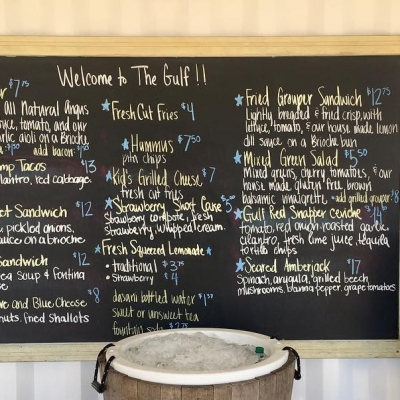 Welcome to The Gulf!!
$7.75
all Natural Angus
tomato, and our
garlic aioli on a Brioche
add bacon
Tacos
$13
cilantro, red cabbage,
Sandwich
$12
pickled onions,
sauce on a brioche
Sandwich
$12
Soup & Fontina
and Blue Cheese
$8
fried shallots
Fresh Cut Fries $4
Hummus $7.50
pita chips
Kid's Grilled Cheese $7
fresh cut fries
Strawberry Short Cake
strawberry compote, fresh
strawberry, whipped cream.
Fresh Squeezed Lemonade
• traditional $3.75
• Strawberry $4
dasani bottled water $1.50
sweet or unsweet tea
fountain soda $2.75
Fried Grouper Sandwich $12.75
Lightly breaded & fried crisp, with
lettuce, tomato, & our house made lemon
dill sauce on a Brioche bun
Mixed Green Salad $5.50
Mixed greens, cherry tomatoes, & our
house made gluten free, brown
balsamic vinaigrette *add grilled grouper $8
Gulf Red Snapper ceviche $14
tomato, red onion, roasted garlic,
cilantro, fresh lime juice, tequila
tortilla chips
Seared Amberjack $17
Spinach, arugula, grilled beech
mushrooms, banana pepper, grape tomatoes